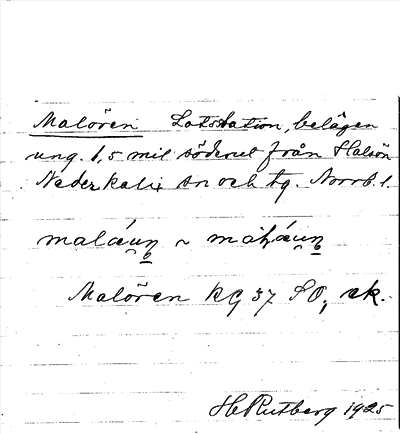 Malören Lotsstation, belägen
ung. 1,5 mil söderut från Halsön
Nederkalix sn och tg. Norrb. l.
maláun ~ maláun
Malören KG 37 SO, ek.
H Rutberg 1925